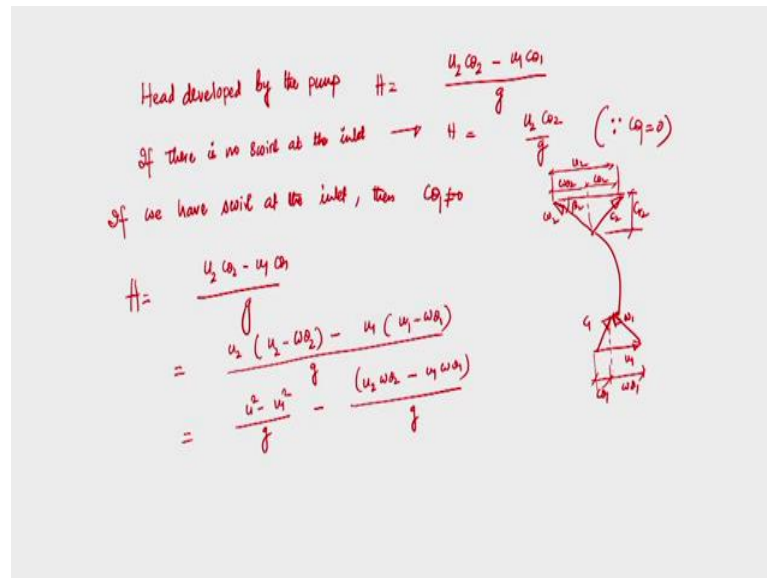 Head developed by the pump H = (u₂ cθ₂ − u₁ cθ₁) / g
If there is no swirl at the inlet → H = u₂ cθ₂ / g (∵ cθ₁ = 0)
If we have swirl at the inlet, then cθ₁ ≠ 0
H = (u₂ cθ₂ − u₁ cθ₁) / g
= (u₂ (u₂ − wθ₂) − u₁ (u₁ − wθ₁)) / g
= (u₂² − u₁²) / g − (u₂ wθ₂ − u₁ wθ₁) / g
u₂
wθ₂ cθ₂
w₂ β₂ c₂ cr₂
c₁ w₁
u₁
cθ₁ wθ₁